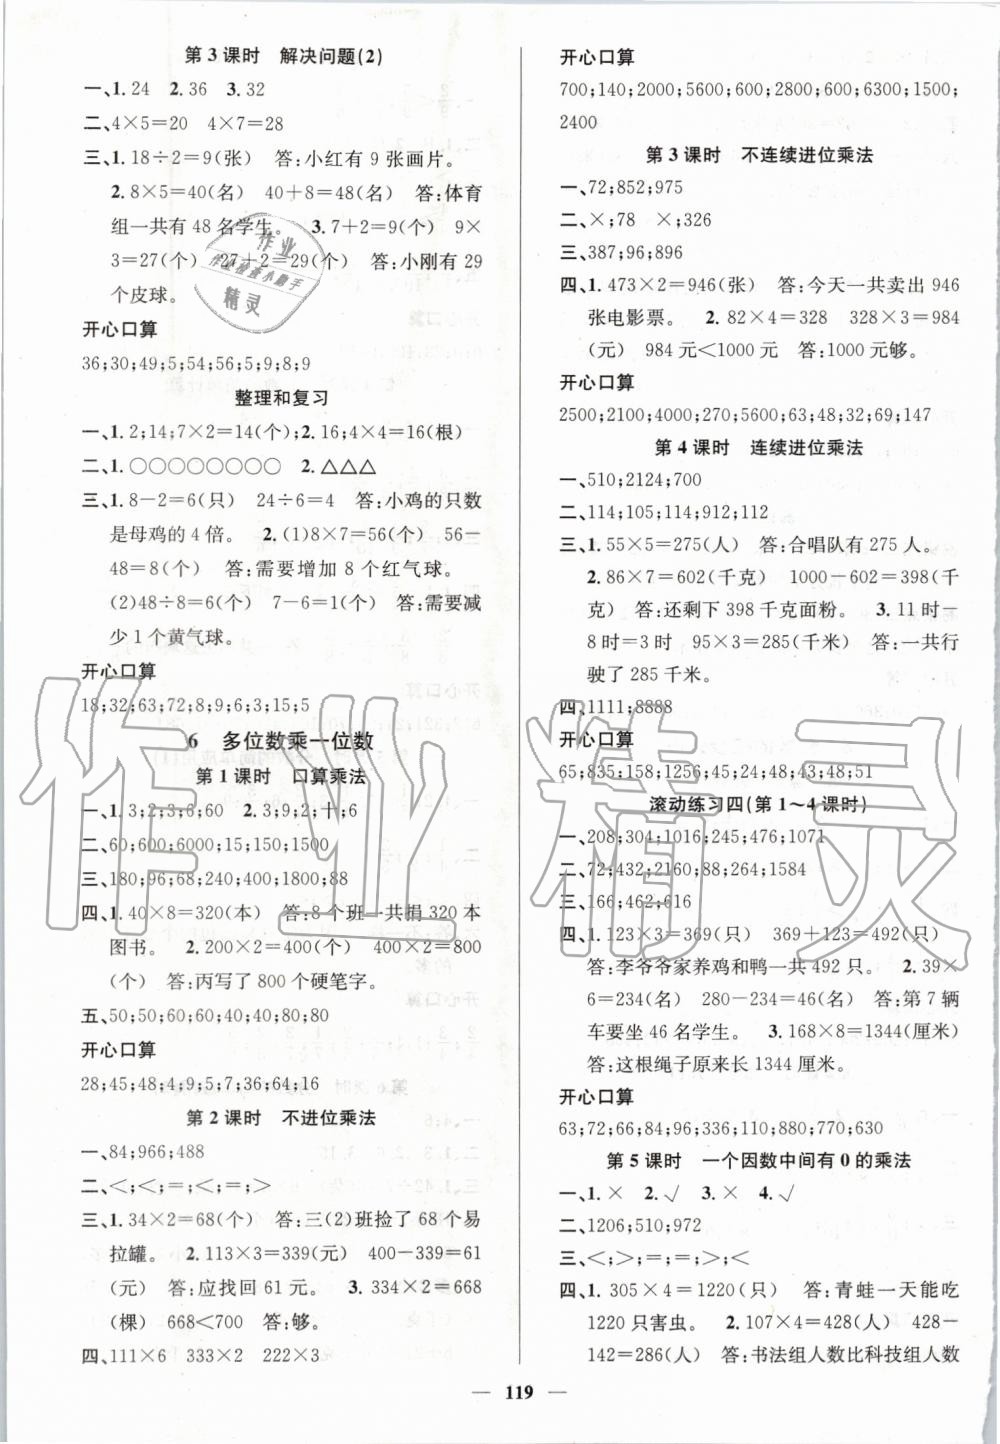 第3课时 解决问题(2)
一、1.24 2.36 3.32
二、4×5=20 4×7=28
三、1.18÷2=9(张) 答:小红有9张画片。
2.8×5=40(名) 40+8=48(名) 答:体育
组一共有48名学生。 3.7+2=9(个) 9×
3=27(个) 27+2=29(个) 答:小刚有29
个皮球。
开心口算
36;30;49;5;54;56;5;9;8;9
整理和复习
一、1.2;14;7×2=14(个);2.16;4×4=16(根)
二、1.○○○○○○○○ 2.△△△
三、1.8-2=6(只) 24÷6=4 答:小鸡的只数
是母鸡的4倍。 2.(1)8×7=56(个) 56-
48=8(个) 答:需要增加8个红气球。
(2)48÷8=6(个) 7-6=1(个) 答:需要减
少1个黄气球。
开心口算
18;32;63;72;8;9;6;3;15;5
6 多位数乘一位数
第1课时 口算乘法
一、1.3;2;3;6;60 2.3;9;2;十;6
二、60;600;6000;15;150;1500
三、180;96;68;240;400;1800;88
四、1.40×8=320(本) 答:8个班一共捐320本
图书。 2.200×2=400(个) 400×2=800
(个) 答:丙写了800个硬笔字。
五、50;50;60;60;40;40;80;80
开心口算
28;45;48;4;9;5;7;36;64;16
第2课时 不进位乘法
一、84;966;488
二、<;<;=;<;=;>
三、1.34×2=68(个) 答:三(2)班捡了68个易
拉罐。 2.113×3=339(元) 400-339=61
(元) 答:应找回61元。 3.334×2=668
(棵) 668<700 答:够。
四、111×6 333×2 222×3
开心口算
700;140;2000;5600;600;2800;600;6300;1500;
2400
第3课时 不连续进位乘法
一、72;852;975
二、×;78 ×;326
三、387;96;896
四、1.473×2=946(张) 答:今天一共卖出946
张电影票。 2.82×4=328 328×3=984
(元) 984元<1000元 答:1000元够。
开心口算
2500;2100;4000;270;5600;63;48;32;69;147
第4课时 连续进位乘法
一、510;2124;700
二、114;105;114;912;112
三、1.55×5=275(人) 答:合唱队有275人。
2.86×7=602(千克) 1000-602=398(千
克) 答:还剩下398千克面粉。 3.11时-
8时=3时 95×3=285(千米) 答:一共行
驶了285千米。
四、1111;8888
开心口算
65;835;158;1256;45;24;48;43;48;51
滚动练习四(第1~4课时)
一、208;304;1016;245;476;1071
二、72;432;2160;88;264;1584
三、166;462;616
四、1.123×3=369(只) 369+123=492(只)
答:李爷爷家养鸡和鸭一共492只。 2.39×
6=234(名) 280-234=46(名) 答:第7辆
车要坐46名学生。 3.168×8=1344(厘米)
答:这根绳子原来长1344厘米。
开心口算
63;72;66;84;96;336;110;880;770;630
第5课时 一个因数中间有0的乘法
一、1.× 2.√ 3.× 4.√
二、1206;510;972
三、<;>;=;=;>;<
四、1. 305×4=1220(只) 答:青蛙一天能吃
1220只害虫。 2.107×4=428(人) 428-
142=286(人) 答:书法组人数比科技组人数
— 119 —
作业
作业检查小助手
精灵
作业精灵